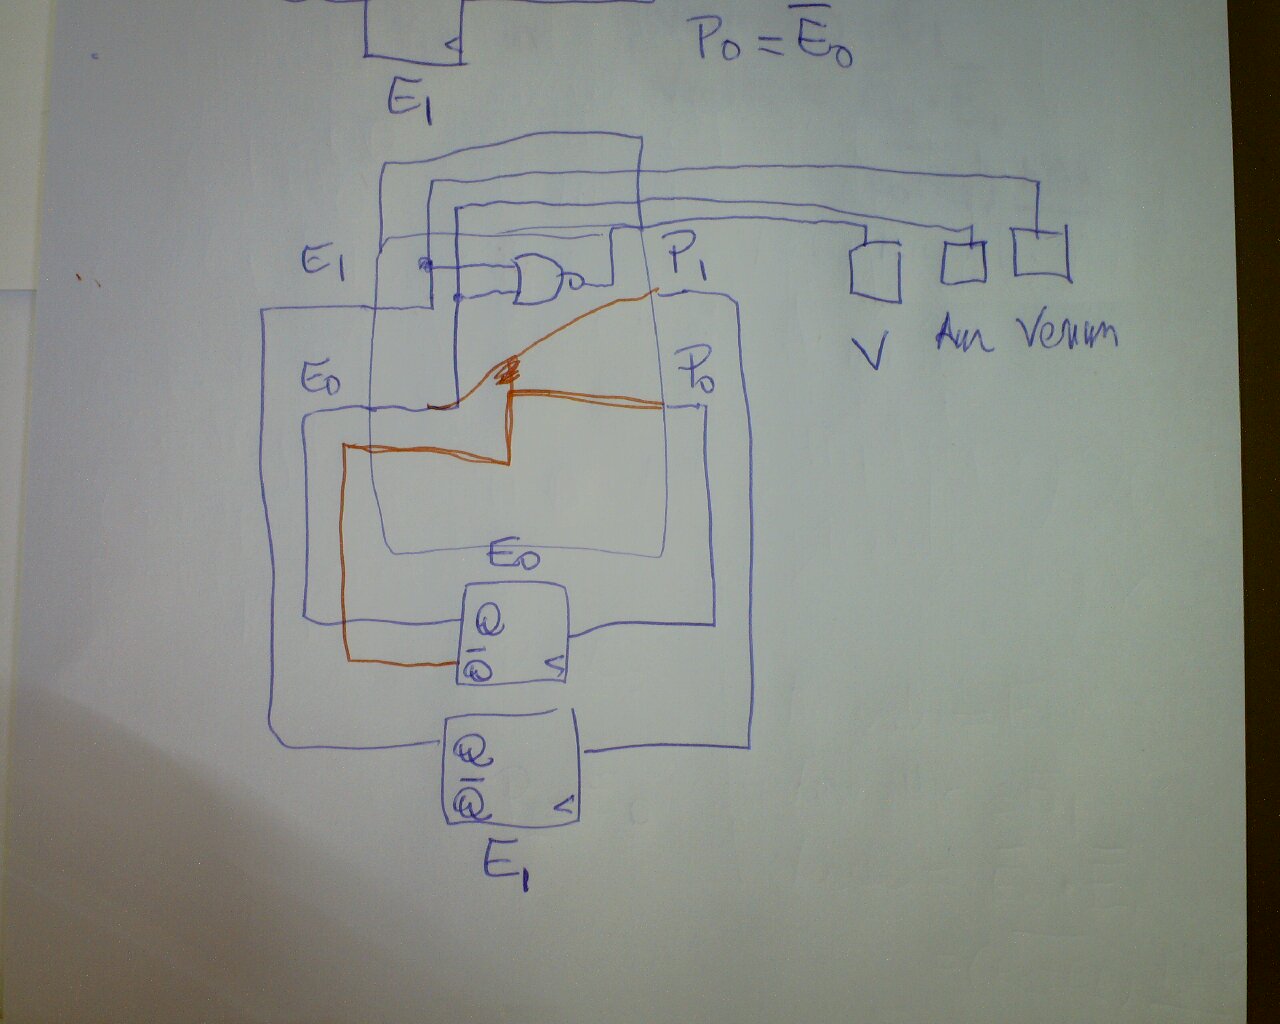 P0 = E̅0
E1
E1
P1
V
Am
Verm
E0
P0
E0
Q
Q̅
Q
Q̅
E1